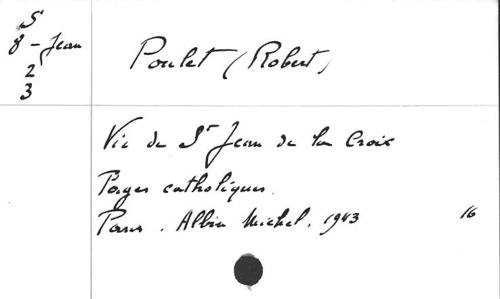 S
8 - Jean
2
3
Poulet (Robert)
Vie de St Jean de la Croix
Pages catholiques.
Paris. Albin Michel. 1943
16